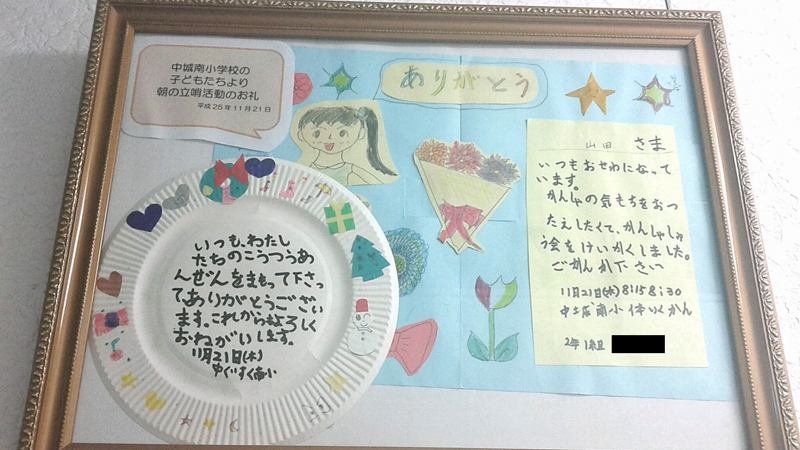 中城南小学校の
子どもたちより
朝の立哨活動のお礼
平成25年11月21日
ありがとう
山田 さま
いつもおせわになって
います。
かんしゃの気もちをおつ
たえしたくて、かんしゃしゅ
う会をけいかくしました。
ごさんか下さい
11月21日(木)8:15 8:30
中城南小体いくかん
2年1組
いつも、わたし
たちのこうつうあ
んぜんをまもって下さっ
てありがとうござい
ます。これからもよろしく
おねがいします。
11月21日(木)
中ぐすく南小